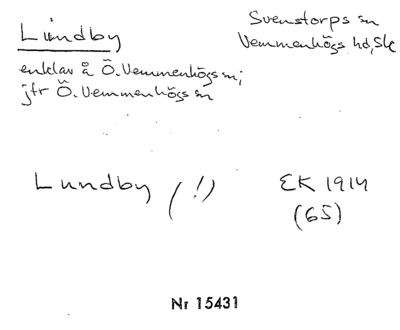 Lundby
Svenstorps sn
Vemmenhögs hd, Sk
enklav å Ö. Vemmenhögs sn;
jfr Ö. Vemmenhögs sn
Lundby (!)
EK 1914
(65)
Nr 15431